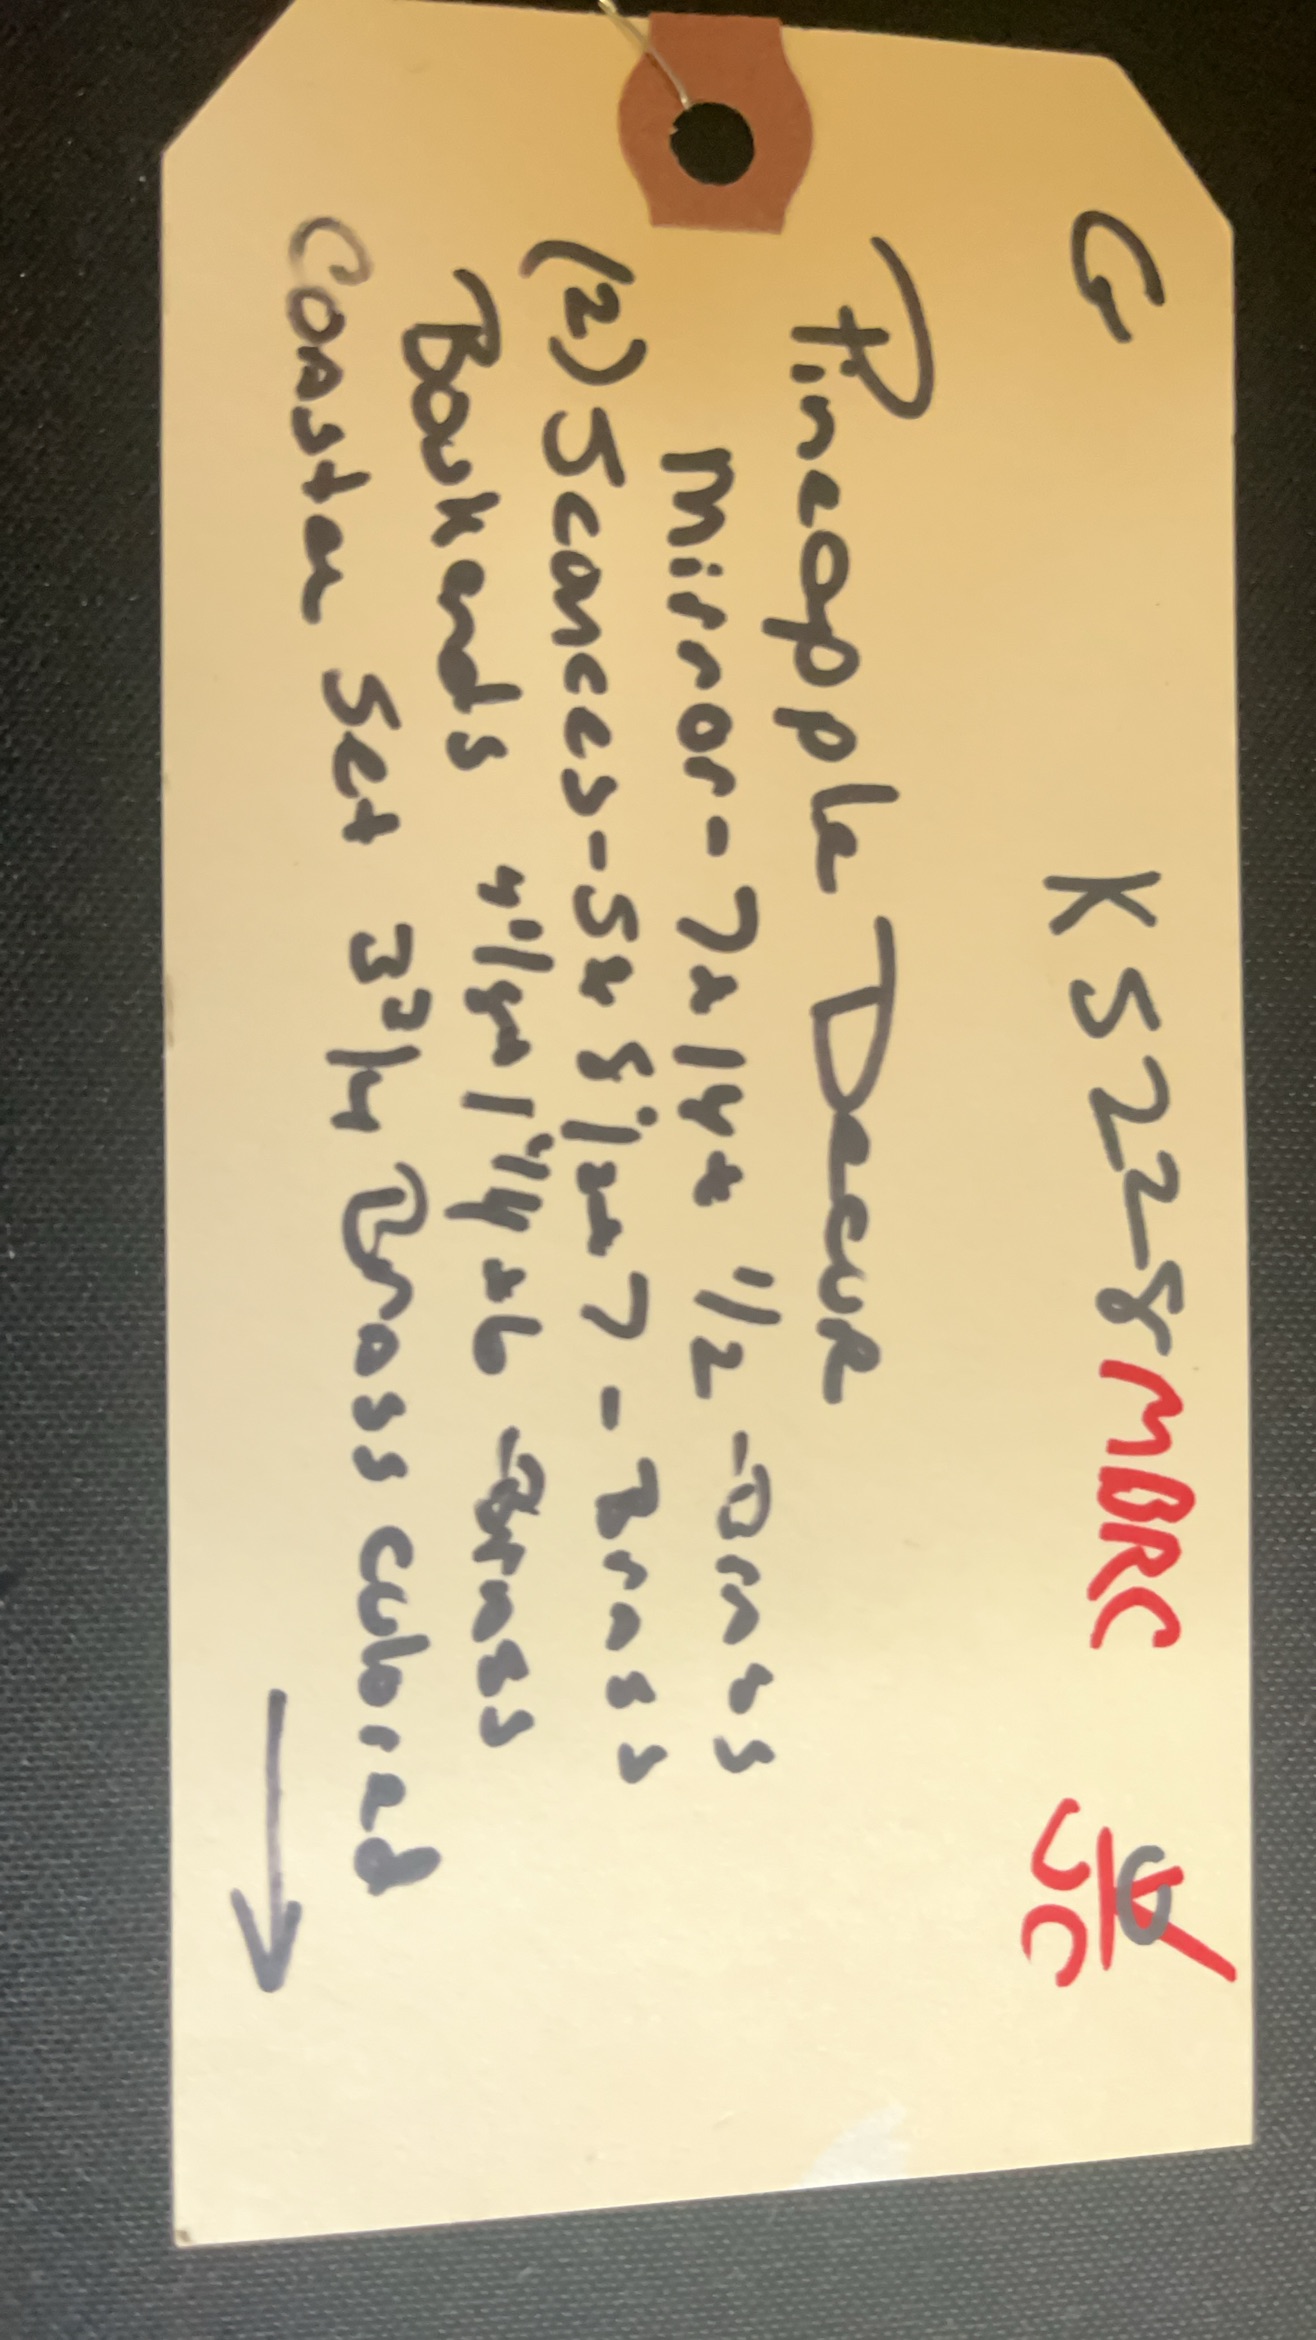 G K5228 MBRC
JC
Pineapple Decor
Mirror - 7x14x 1/2 - Brass
(2) Scances - 5x8 x7 - Brass
Bookends 4 1/8x1 1/4x6 - Brass
Coaster Set 3 3/4 Brass